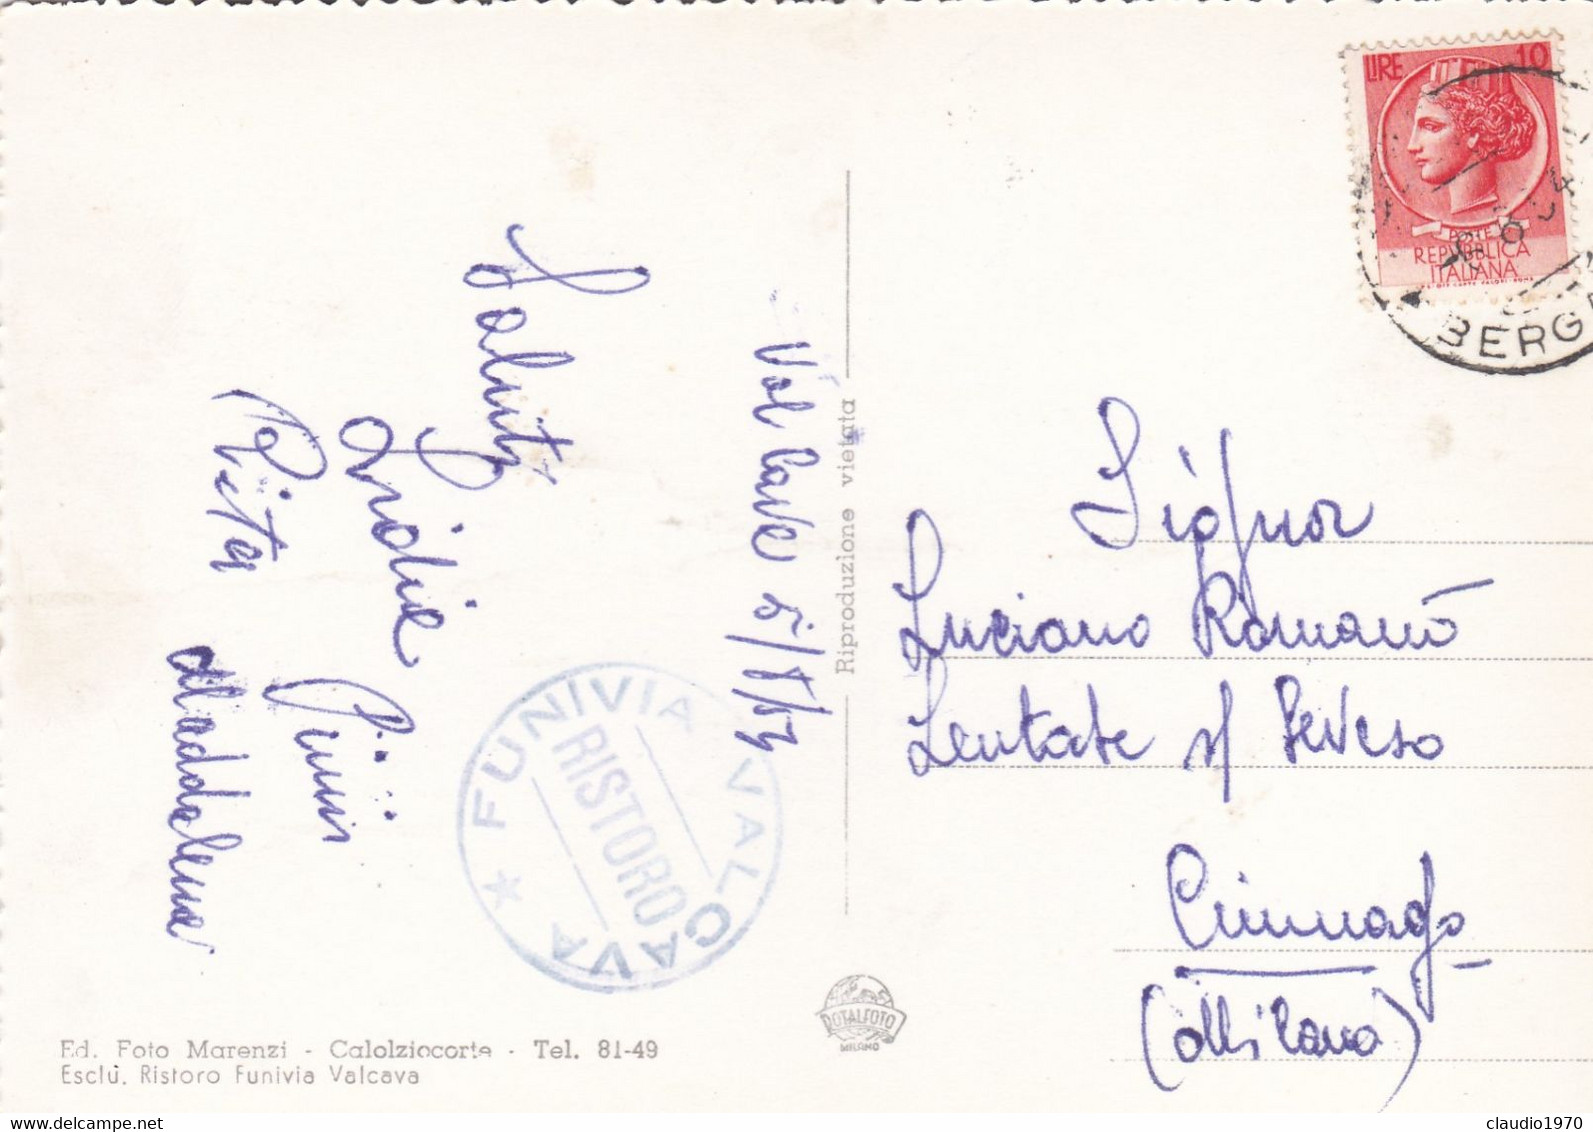 Saluti
Lidia
Rita Pinin
Maddalena
Val Cava 5/8/54
FUNIVIA VALCAVA
RISTORO
Riproduzione vietata
LIRE 10
POSTE
REPVBBLICA
ITALIANA
BERG
Signor
Luciano Romanò
Lentate s/ Seveso
Cimnago
(Milano)
ROTALFOTO
MILANO
Ed. Foto Marenzi - Calolziocorte - Tel. 81-49
Esclu. Ristoro Funivia Valcava
claudio1970